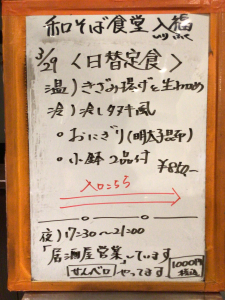 和そば食堂 入福
3/29 〈日替定食〉
温)きざみ揚げと生わかめ
冷)冷しタヌキ風
・おにぎり(明太子昆布)
・小鉢2品付 ¥850-
入口こちら
夜)17:30〜21:00
「居酒屋営業」しています
「せんベロ」やってます
1000円
税込